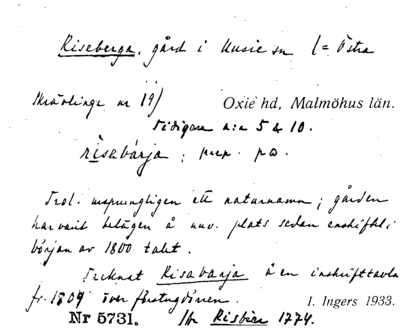 Riseberga, gård i Husie sn (= Östra
Skrävlinge nr 19)
Oxie hd, Malmöhus län.
Tidigare n:r 5 & 10.
risabárja ; prep. på.
Trol. ursprungligen ett naturnamn; gården
har varit belägen å nuv. plats sedan enskiftet i
början av 1800 talet.
Tecknat Risabärja å en inskrifttavla
fr. 1809 över förstugdörren.
I. Ingers 1933.
Nr 5731. Risbiere 1774.